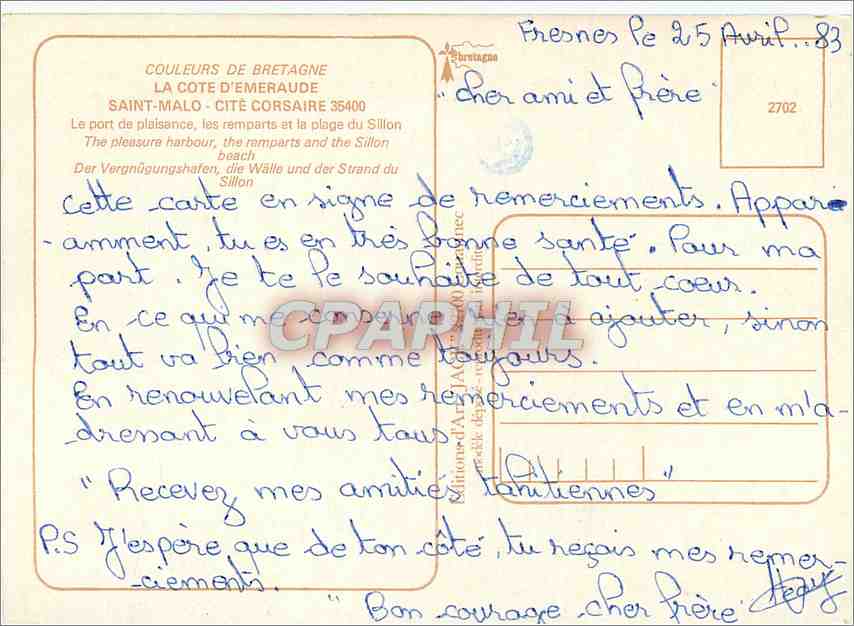 Fresnes le 25 Avril..83
bretagne
"cher ami et frère"
2702
COULEURS DE BRETAGNE
LA COTE D'EMERAUDE
SAINT-MALO - CITÉ CORSAIRE 35400
Le port de plaisance, les remparts et la plage du Sillon
The pleasure harbour, the ramparts and the Sillon
beach
Der Vergnûgungshafen, die Wälle und der Strand du
Sillon
cette carte en signe de remerciements. Appar-
-amment, tu es en très bonne santé. Pour ma
part. Je te le souhaite de tout cœur.
En ce qui me conserne rien à ajouter, sinon
tout va bien comme toujours.
En renouvelant mes remerciements et en m'a-
dressant à vous tous.
"Recevez mes amitiés tahitiennes"
P.S J'espère que de ton côté, tu reçois mes remer-
-ciements.
"Bon courage cher frère"
Editions d'Art JACK
modèle déposé - interdit
CPARPHIL